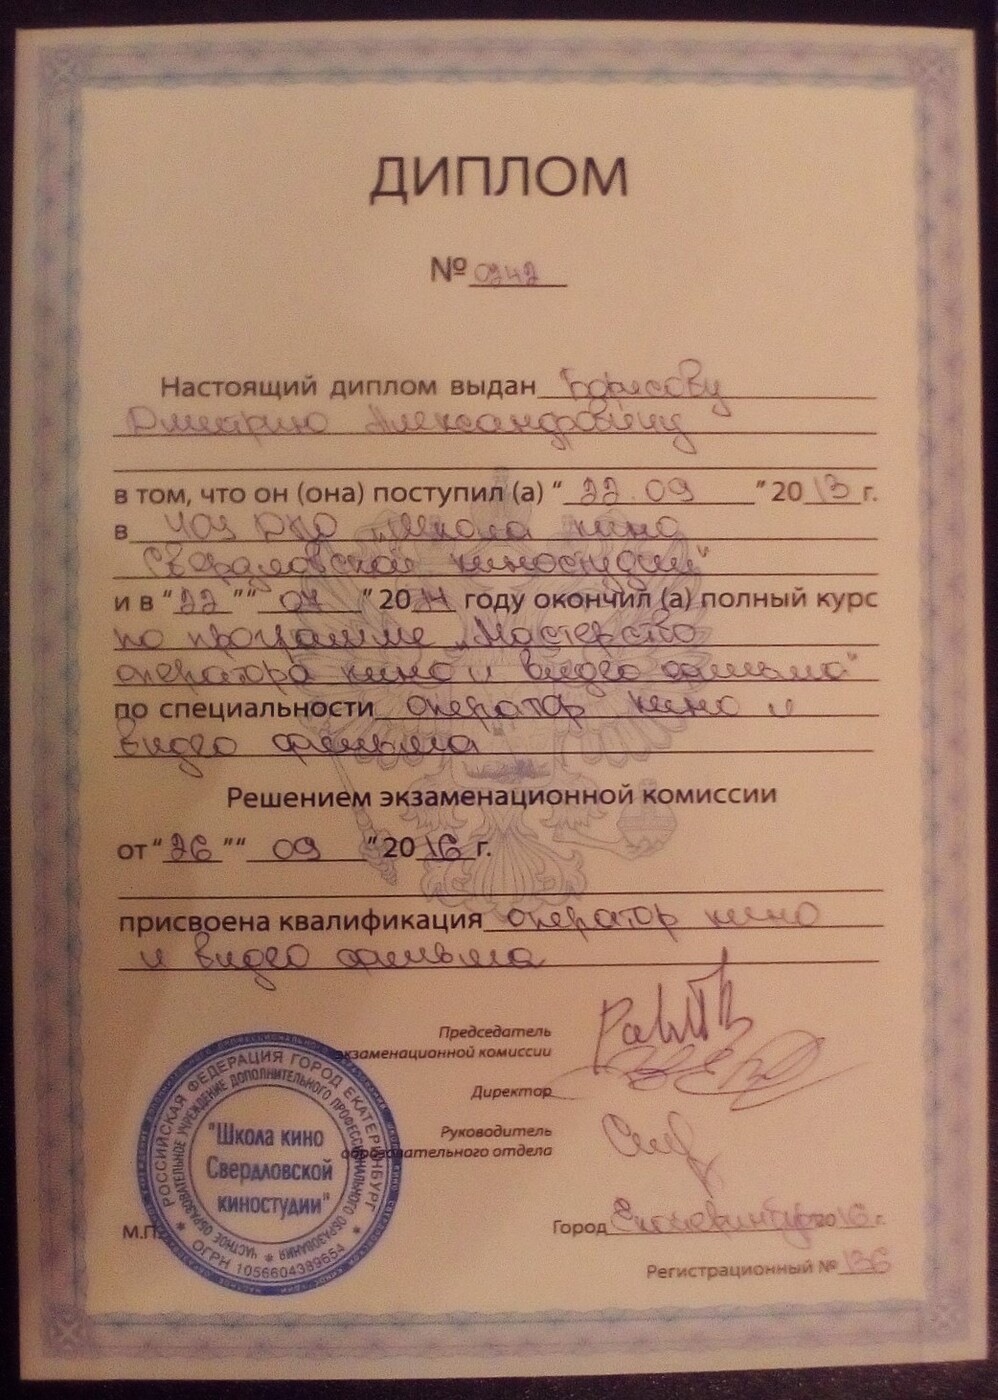 ДИПЛОМ
№ 0242
Настоящий диплом выдан Борисову
Дмитрию Александровичу
в том, что он (она) поступил (а) " 22.09 " 2013 г.
в ЧОУ ДПО "Школа кино
Свердловской киностудии"
и в "22" "07" 2014 году окончил (а) полный курс
по программе "Мастерство
оператора кино и видео фильма"
по специальности оператор кино и
видео фильма
Решением экзаменационной комиссии
от "26" "09" 2016 г.
присвоена квалификация оператор кино
и видео фильма
Председатель
экзаменационной комиссии
Директор
Руководитель
образовательного отдела
М.П.
Город Екатеринбург 2016 г.
Регистрационный № 136
РОССИЙСКАЯ ФЕДЕРАЦИЯ ГОРОД ЕКАТЕРИНБУРГ
ЧАСТНОЕ ОБРАЗОВАТЕЛЬНОЕ УЧРЕЖДЕНИЕ ДОПОЛНИТЕЛЬНОГО ПРОФЕССИОНАЛЬНОГО ОБРАЗОВАНИЯ
"Школа кино
Свердловской
киностудии"
ОГРН 1056604389654